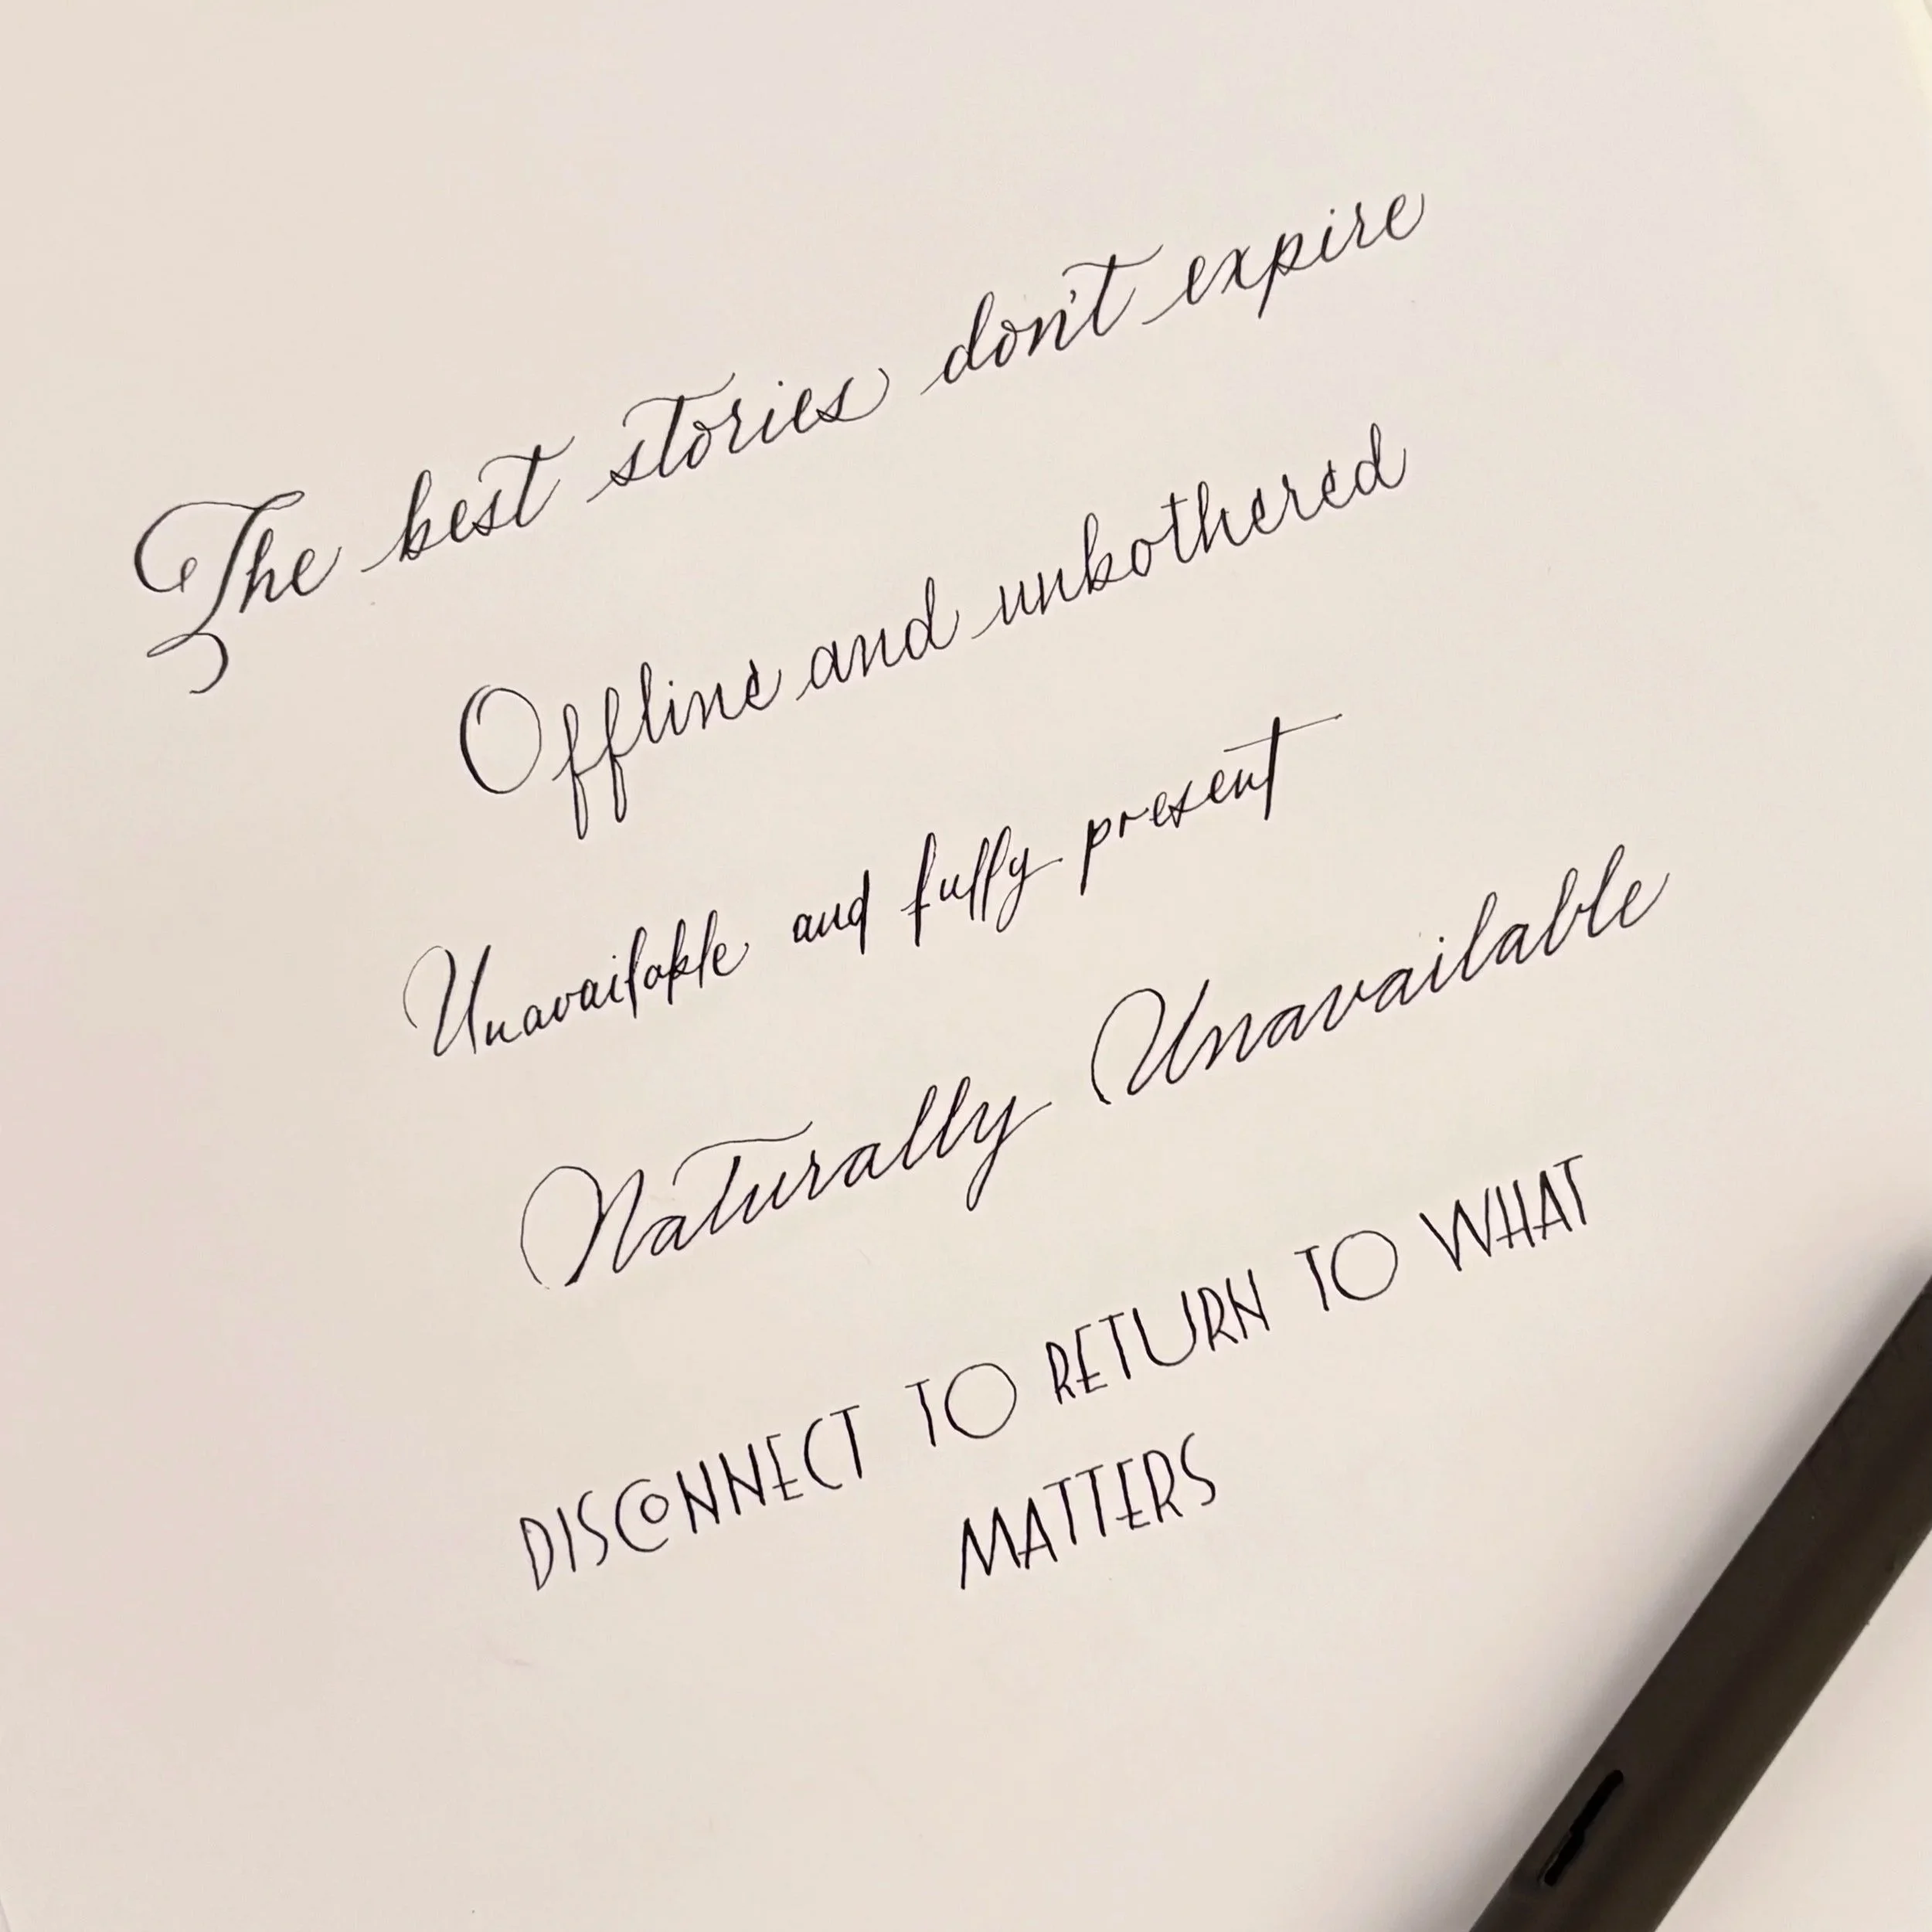 The best stories don't expire
Offline and unbothered
Unavailable and fully present
Naturally Unavailable
DISCONNECT TO RETURN TO WHAT
MATTERS